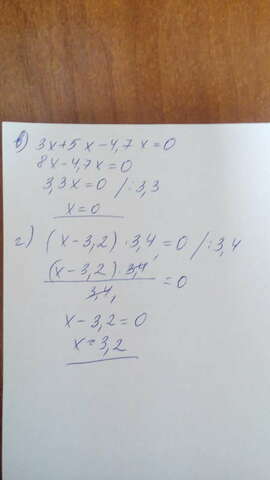 в) 3x+5x-4,7x=0
8x-4,7x=0
3,3x=0 /:3,3
x=0
г) (x-3,2)·3,4=0 /:3,4
(x-3,2)·3,4
3,4
=0
x-3,2=0
x=3,2